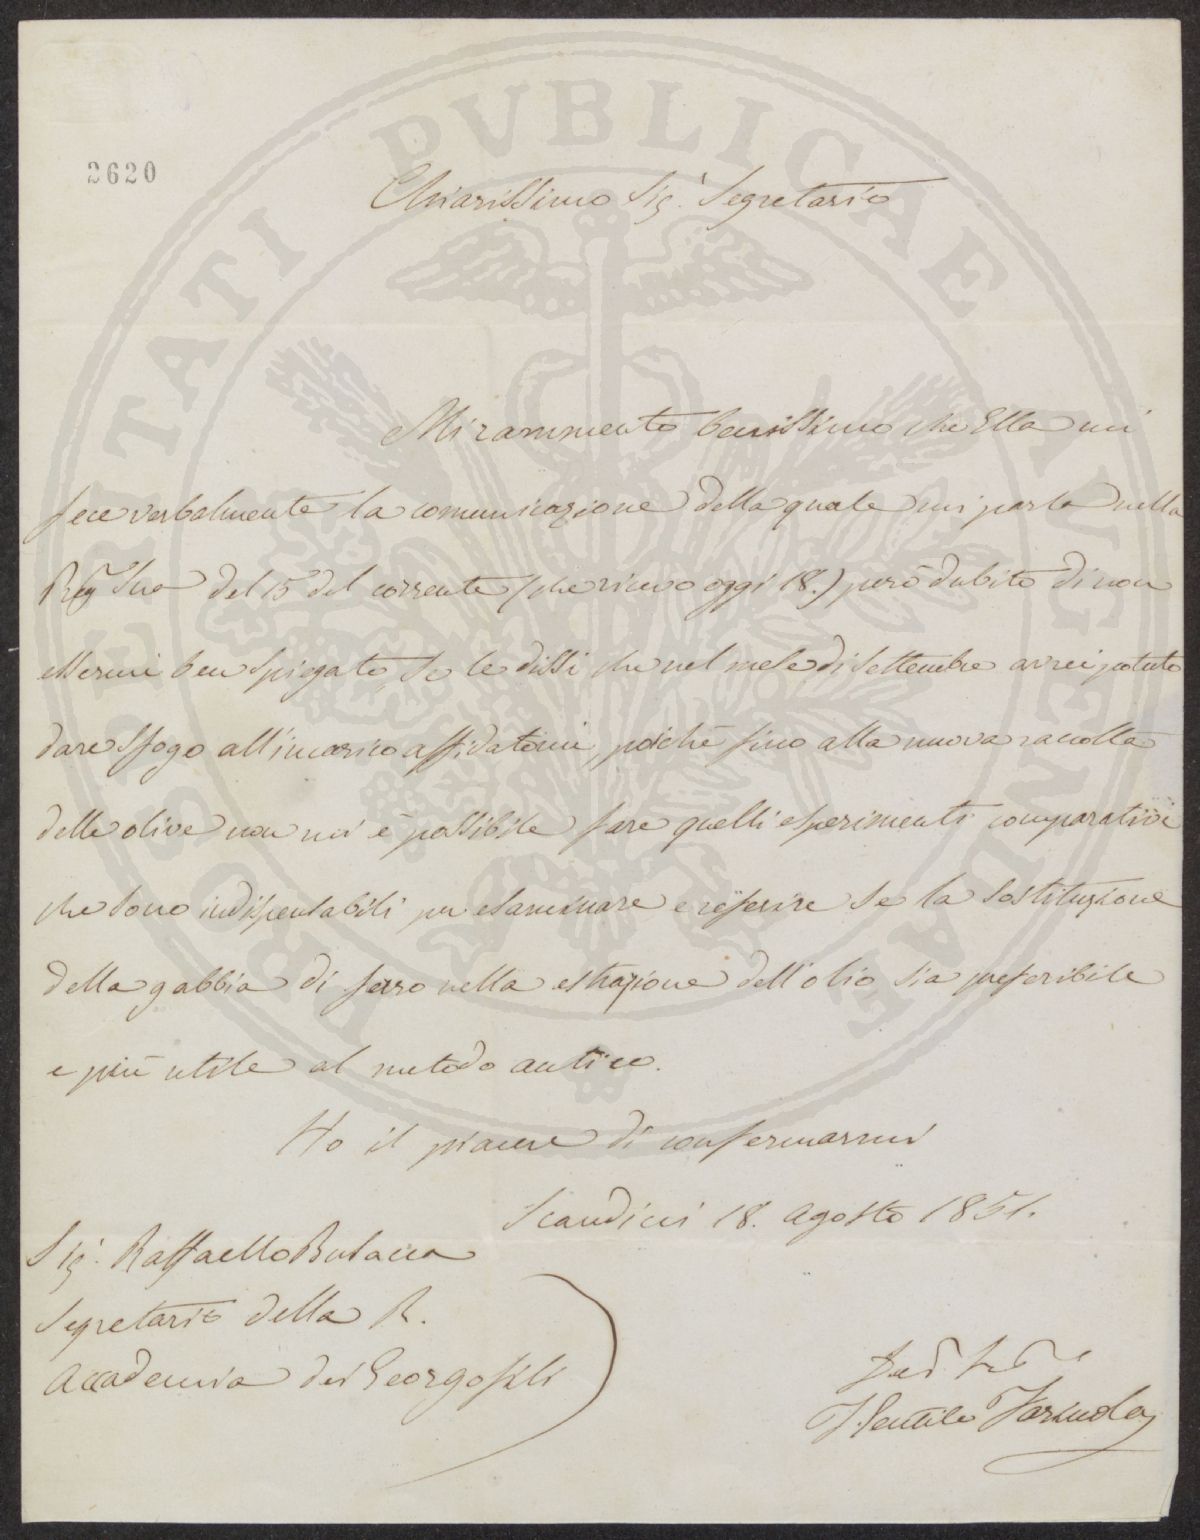 2620
Chiarissimo Sig.r Segretario
Mi rammento benissimo che Ella mi
fece verbalmente la comunicazione della quale mi parla nella
Sua del 15 del corrente (che ricevo oggi 18.) però dubito di non
essermi ben spiegato se le dissi che nel mese di Settembre avrei potuto
dare sfogo all'incarico affidatomi, poichè fino alla nuova raccolta
delle olive non mi è possibile fare quelli esperimenti comparativi
che sono indispensabili per esaminare e referire se la sostituzione
della gabbia di ferro nella estrazione dell'olio sia preferibile
e più utile al metodo antico.
Ho il piacere di confermarmi
Scandicci 18. Agosto 1851.
Sig.r Raffaello Busacca
Segretario della R.
Accademia dei Georgofili
Gentile Farinola
PROSPERITATI PVBLICAE AVGENDAE